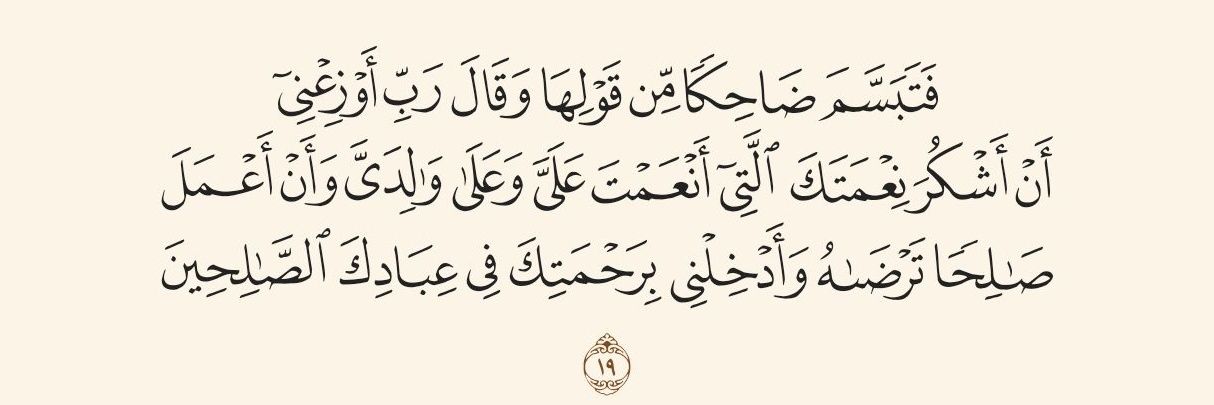 فَتَبَسَّمَ ضَاحِكًا مِّن قَوْلِهَا وَقَالَ رَبِّ أَوْزِعْنِىٓ
أَنْ أَشْكُرَ نِعْمَتَكَ ٱلَّتِىٓ أَنْعَمْتَ عَلَىَّ وَعَلَىٰ وَٰلِدَىَّ وَأَنْ أَعْمَلَ
صَٰلِحًا تَرْضَىٰهُ وَأَدْخِلْنِى بِرَحْمَتِكَ فِى عِبَادِكَ ٱلصَّٰلِحِينَ
١٩